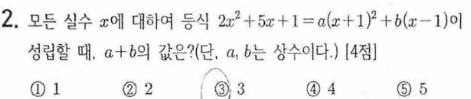 2. 모든 실수 x에 대하여 등식 2x²+5x+1=a(x+1)²+b(x-1)이
성립할 때, a+b의 값은?(단, a, b는 상수이다.) [4점]
① 1 ② 2 ③ 3 ④ 4 ⑤ 5